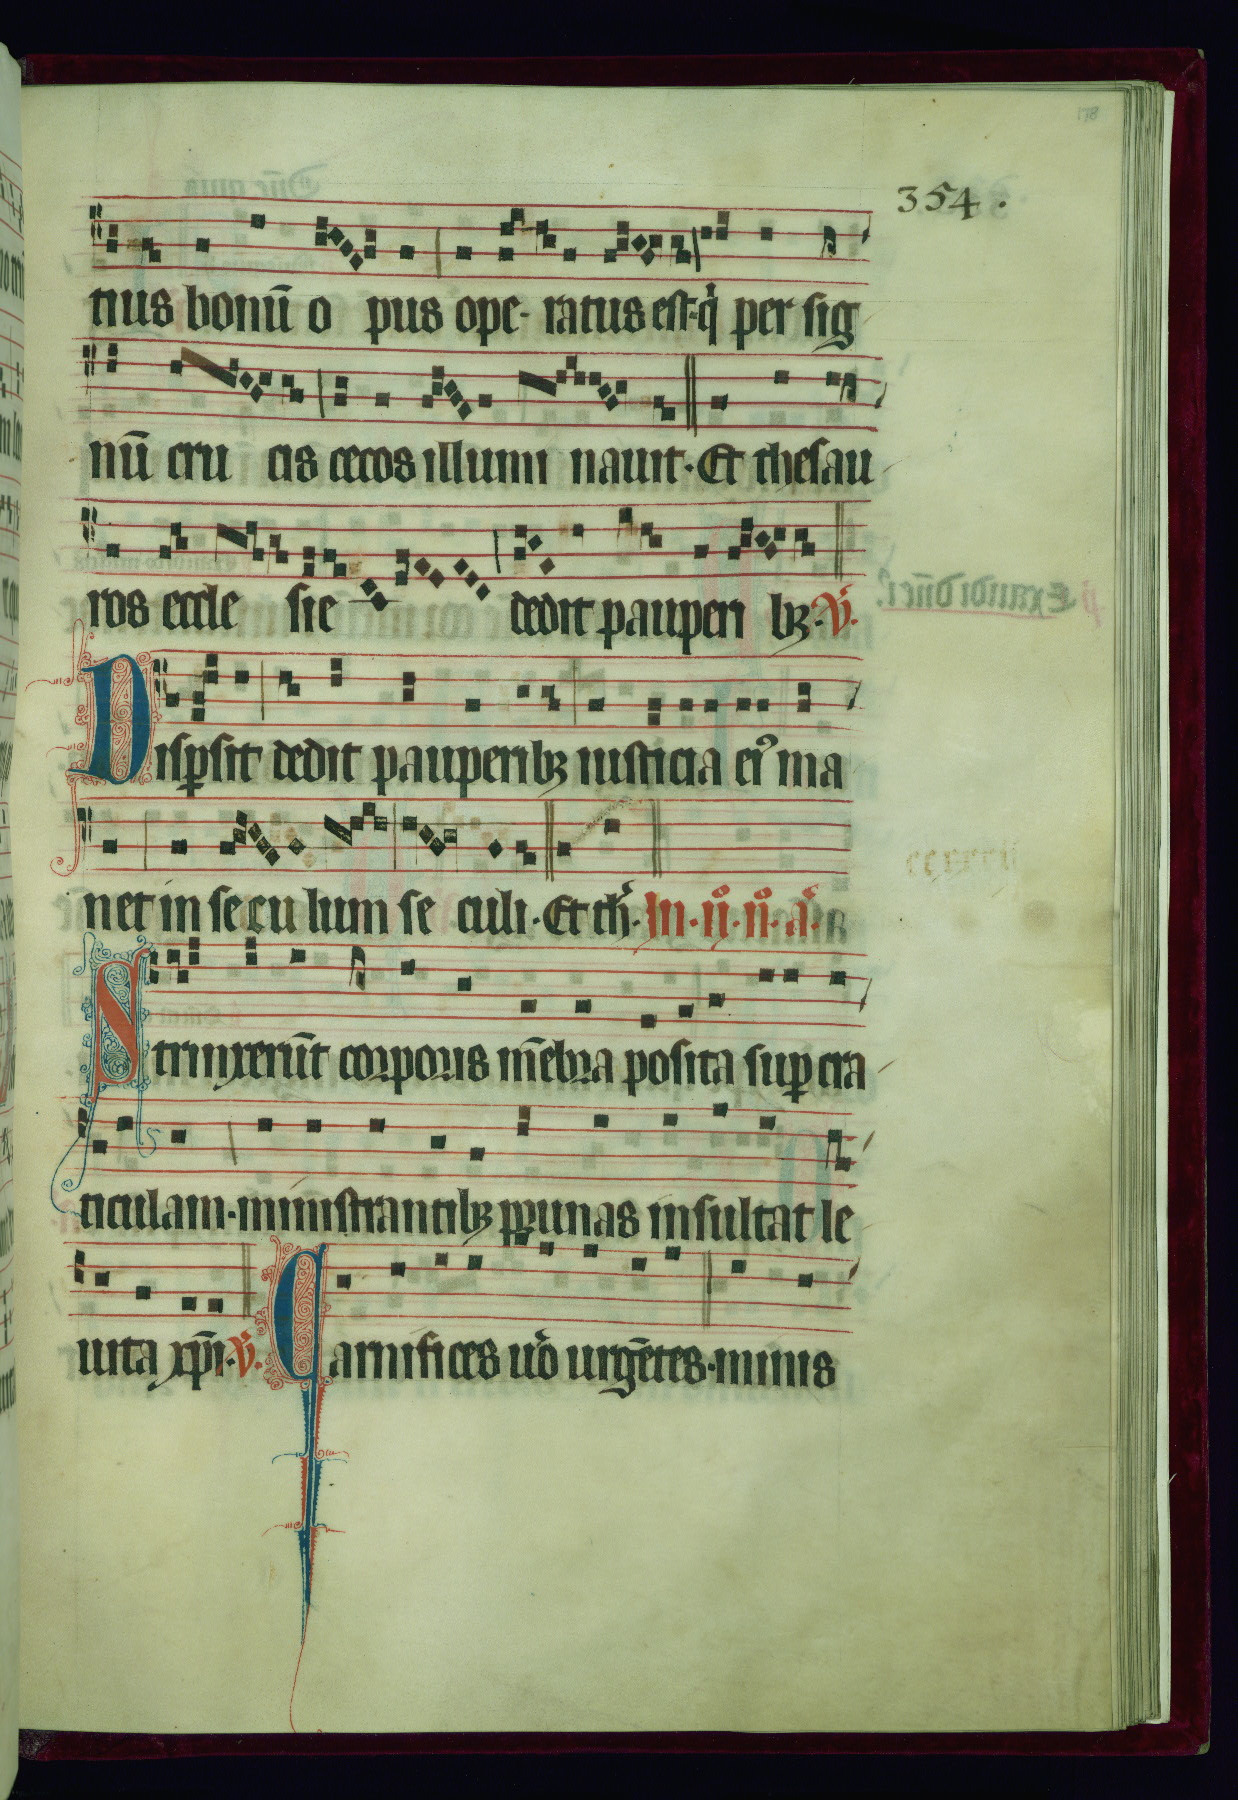 178
354.
tius bonū o pus ope- ratus est·q̇ per sig
nū cru cis cecos illumi nauit· Et thesau
ros eccle sie dedit pauperi bꝫ· V̄.
Dispͤsit dedit pauperibꝫ iusticia eiꝰ ma
net in se cu lum se culi· Et th̄. In· ii· n̊· a᷒·
Strinxerūt corporis mēbra posita suꝑ cra
ticulam· ministrantibꝫ ꝓunas insultat le
uita xp̄i· V̄. Carnifices u̇o urgētes· minis